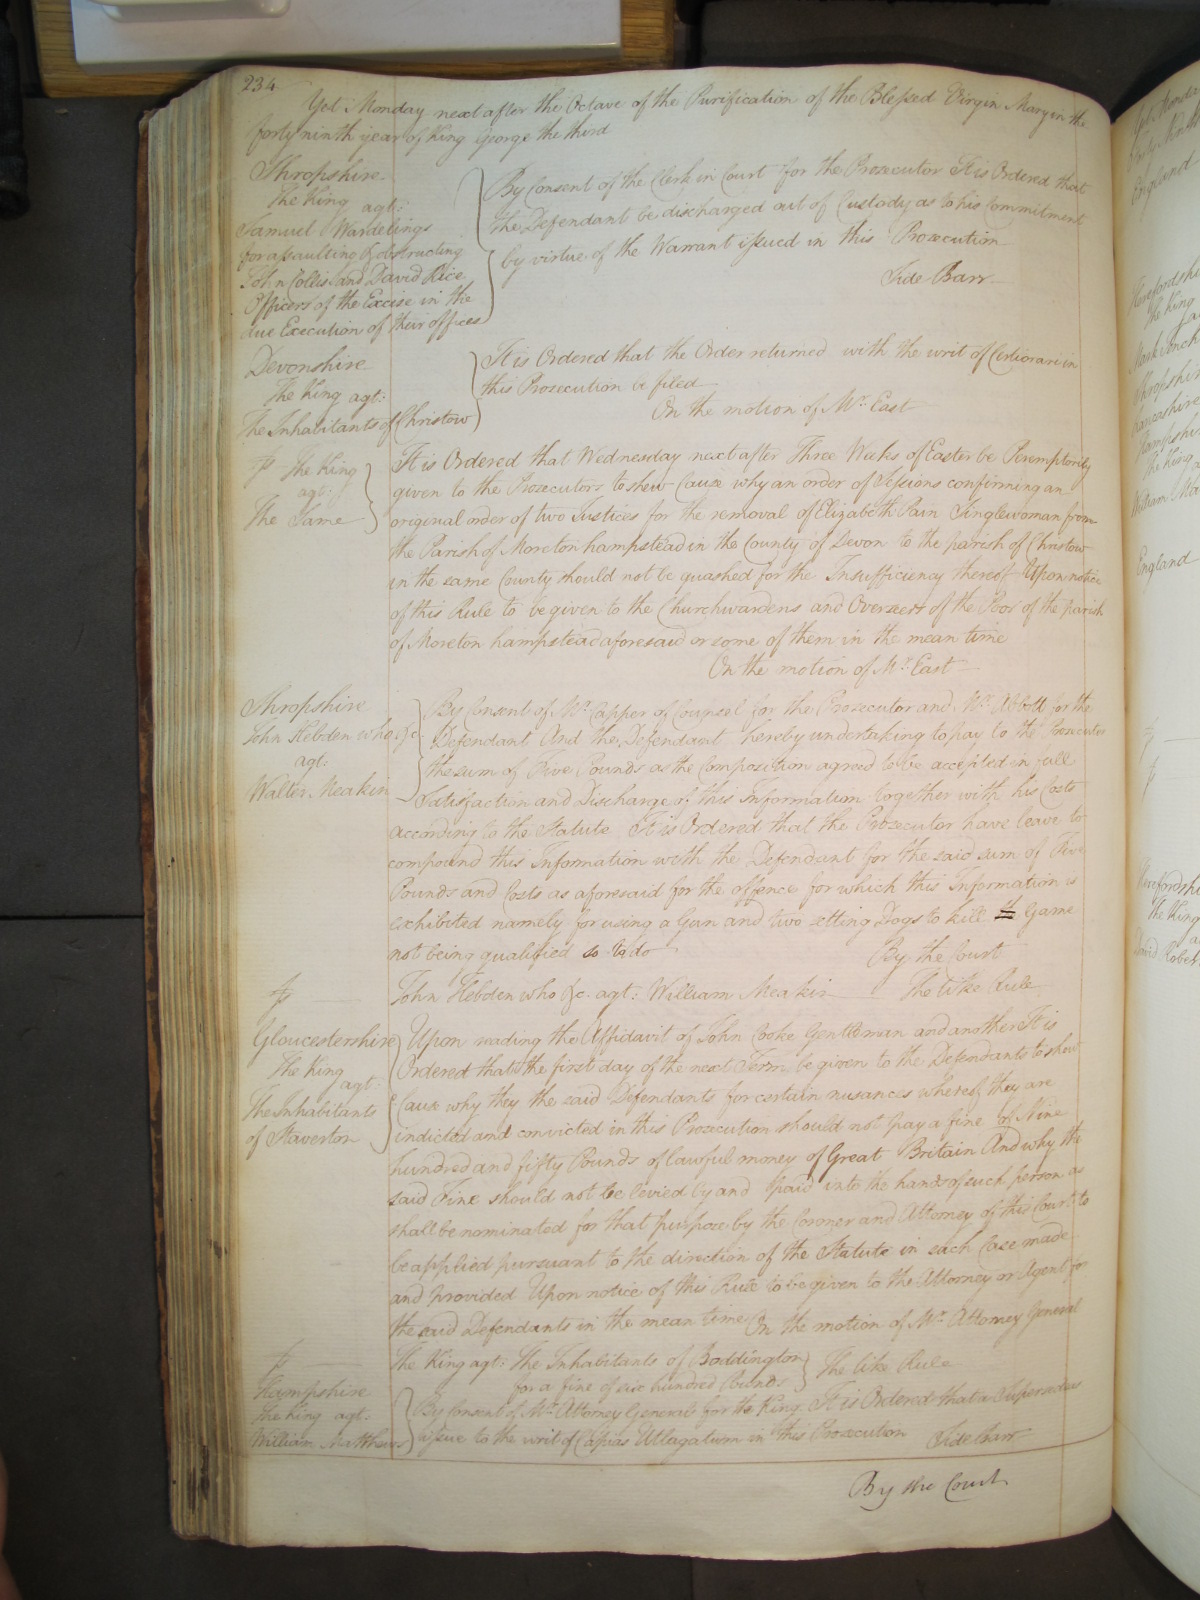 234
Yet Monday next after the Octave of the Purification of the Blessed Virgin Mary in the
forty ninth year of King George the third
Shropshire
The King agt:
Samuel Wardelings
for assaulting & obstructing
John Collis and David Rice
Officers of the Excise in the
due Execution of their offices
By Consent of the Clerk in Court for the Prosecutor It is Ordered that
the Defendant be discharged out of Custody as to his Commitment
by virtue of the Warrant issued in this Prosecution
Side Barr
Devonshire
The King agt:
The Inhabitants of Christow
It is Ordered that the Order returned with the writ of Certiorari in
this Prosecution be filed
On the motion of Mr. East
The King
agt:
The Same
It is Ordered that Wednesday next after Three Weeks of Easter be Peremptorily
given to the Prosecutors to shew Cause why an order of Sessions confirming an
original order of two Justices for the removal of Elizabeth Pain Singlewoman from
the Parish of Moreton hampstead in the County of Devon to the parish of Christow
in the same County should not be quashed for the Insufficiency thereof Upon notice
of this Rule to be given to the Churchwardens and Overseers of the Poor of the parish
of Moreton hampstead aforesaid or some of them in the mean time
On the motion of Mr. East
Shropshire
John Hebden who &c.
agt:
Walter Meakin
By Consent of Mr. Capper of Counsel for the Prosecutor and Mr. Abbott for the
Defendant And the Defendant hereby undertaking to pay to the Prosecutor
the sum of Five Pounds as the Composition agreed to be accepted in full
Satisfaction and Discharge of this Information together with his Costs
according to the Statute It is Ordered that the Prosecutor have leave to
compound this Information with the Defendant for the said sum of Five
Pounds and Costs as aforesaid for the offence for which this Information is
exhibited namely for using a Gun and two setting Dogs to kill Game
not being qualified so to do
By the Court
John Hebden who &c. agt: William Meakin The like Rule
Gloucestershire
The King
agt:
The Inhabitants
of Staverton
Upon reading the Affidavit of John Cooke Gentleman and another It is
Ordered that the first day of the next Term be given to the Defendants to shew
Cause why they the said Defendants for certain nusances whereof they are
indicted and convicted in this Prosecution should not pay a fine of Nine
hundred and fifty Pounds of lawful money of Great Britain And why the
said Fine should not be levied by and paid into the hands of such person as
shall be nominated for that purpose by the Coroner and Attorney of this Court to
be applied pursuant to the direction of the Statute in such Case made
and provided Upon notice of this Rule to be given to the Attorney or Agent for
the said Defendants in the mean time On the motion of Mr. Attorney General
The King agt: The Inhabitants of Boddington
for a fine of six hundred Pounds
The like Rule
Hampshire
The King agt:
William Matthews
By Consent of Mr. Attorney General for the King It is Ordered that a Supersedeas
issue to the writ of Capias Utlagatum in this Prosecution Side barr
By the Court
England
The King
England
The King